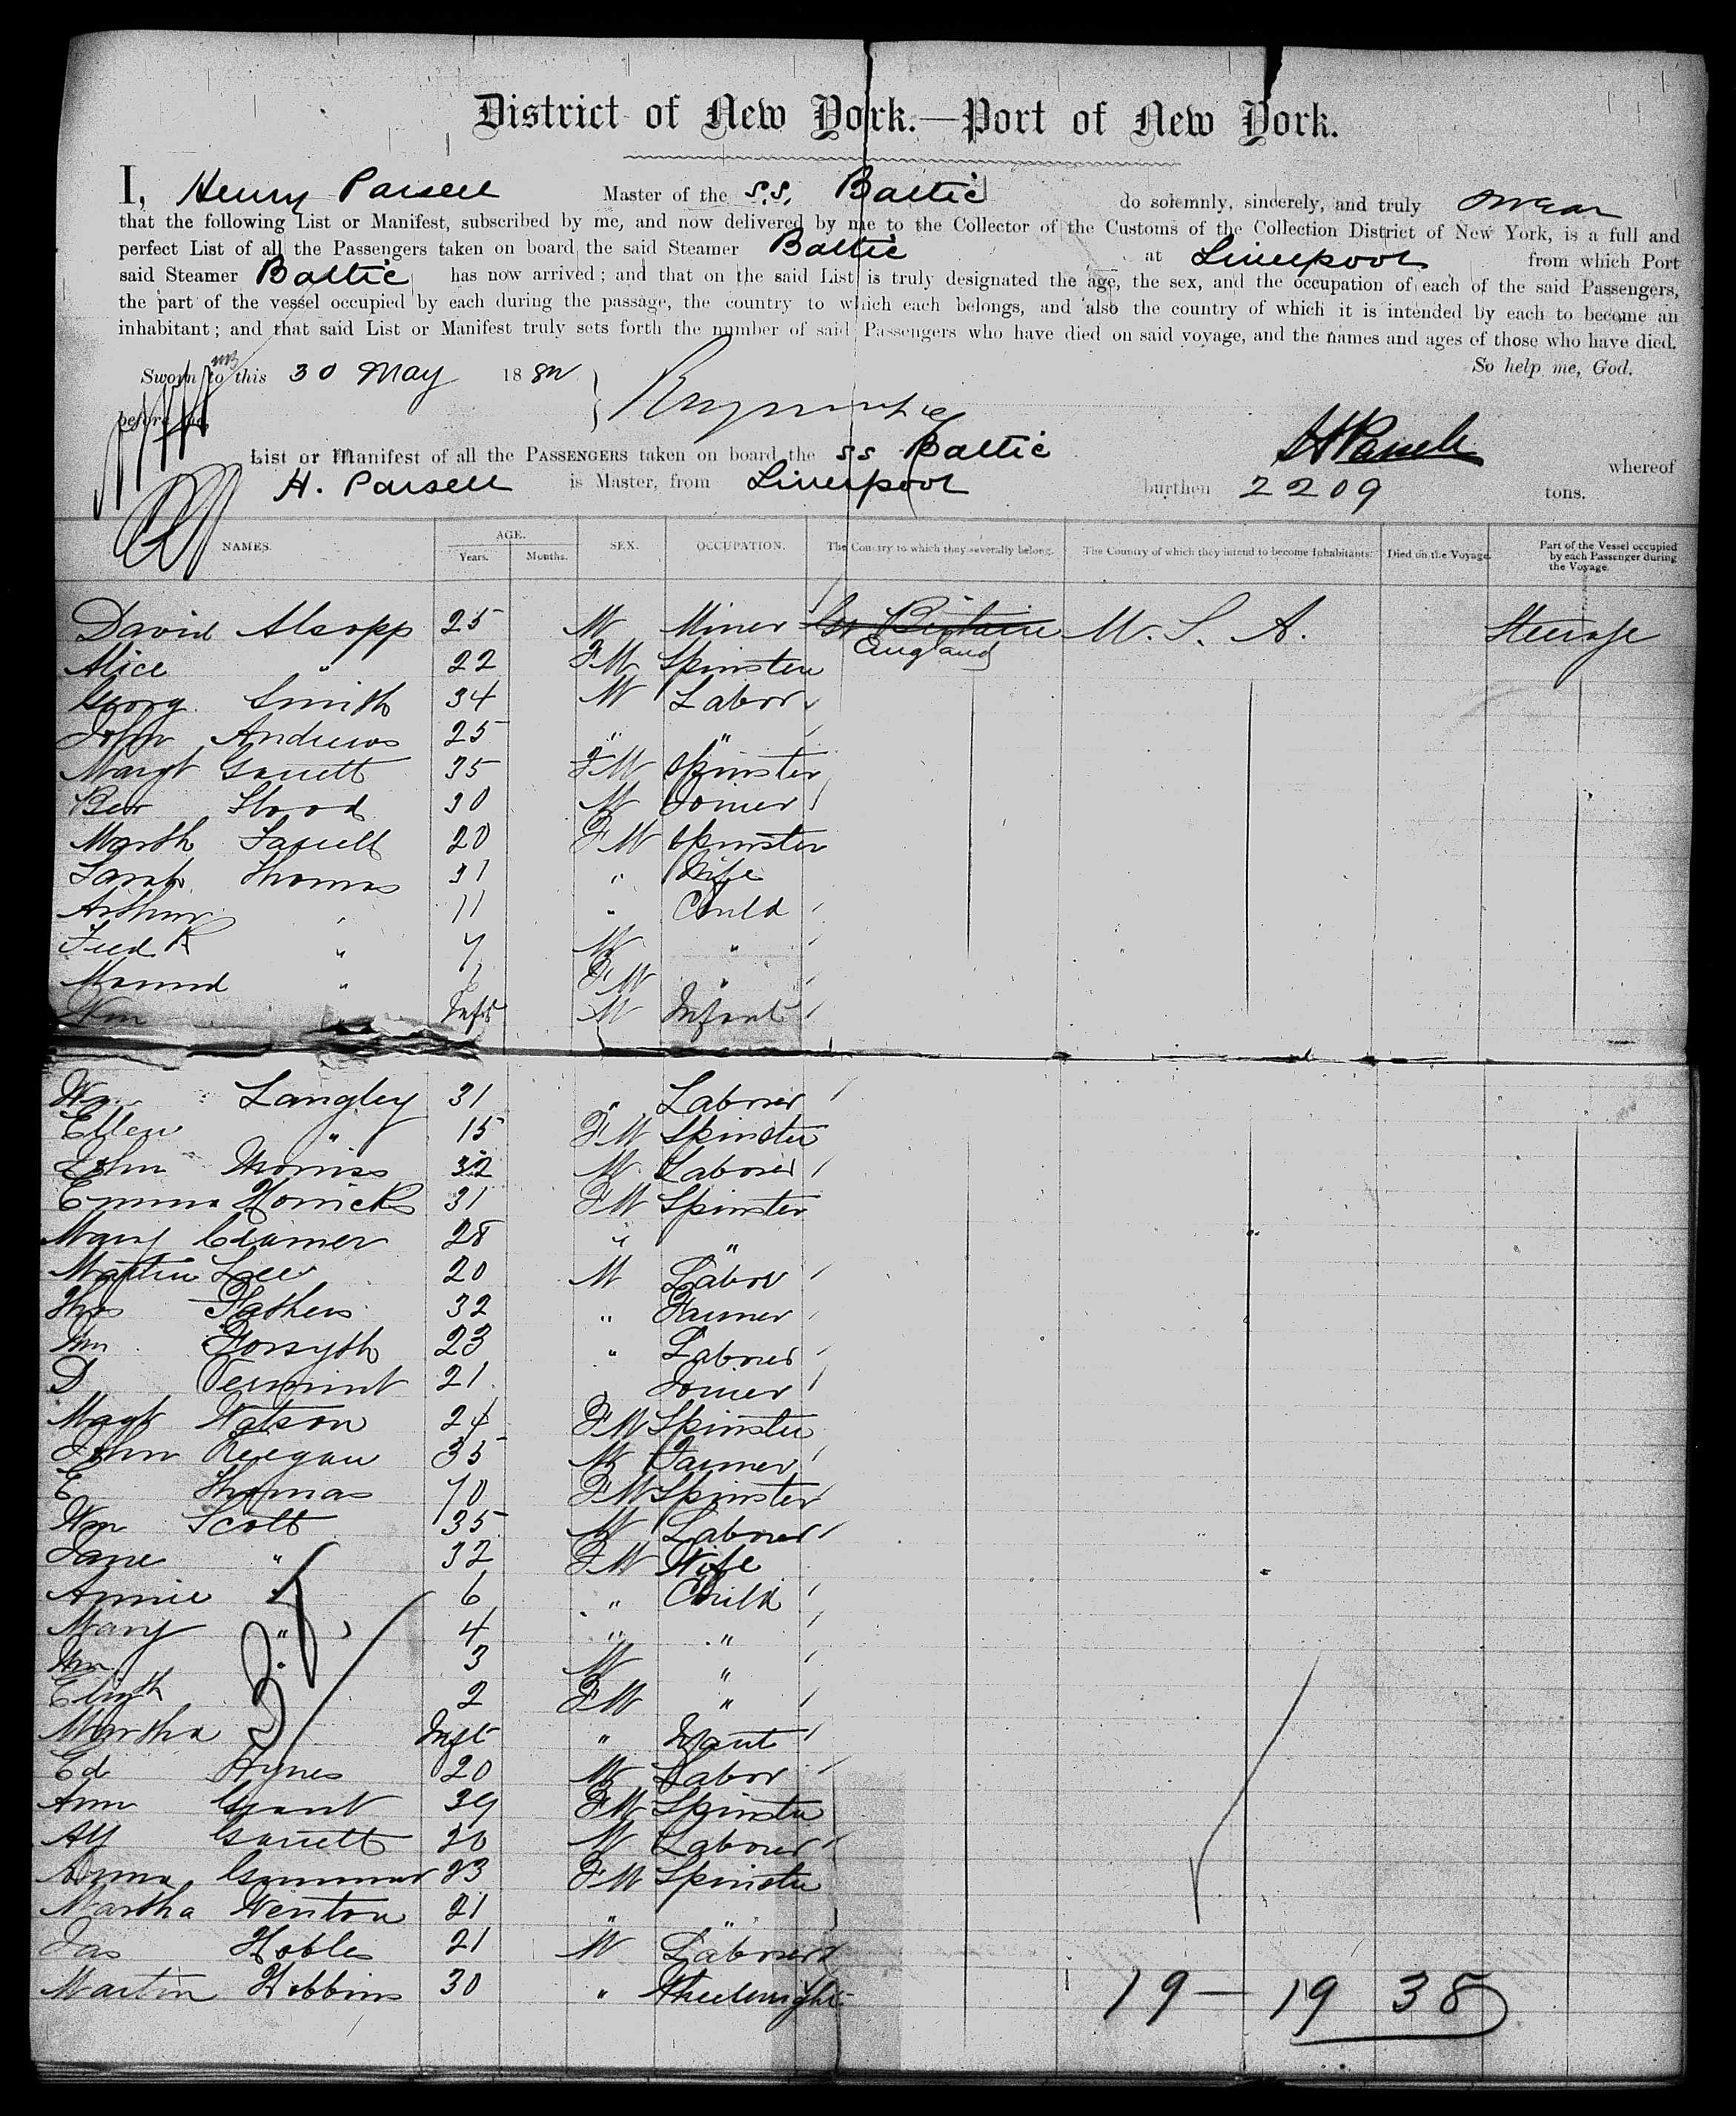 District of New York.—Port of New York.
I, Henry Parsell Master of the S.S. Baltic do solemnly, sincerely, and truly swear
that the following List or Manifest, subscribed by me, and now delivered by me to the Collector of the Customs of the Collection District of New York, is a full and
perfect List of all the Passengers taken on board the said Steamer Baltic at Liverpool from which Port
said Steamer Baltic has now arrived; and that on the said List is truly designated the age, the sex, and the occupation of each of the said Passengers,
the part of the vessel occupied by each during the passage, the country to which each belongs, and also the country of which it is intended by each to become an
inhabitant; and that said List or Manifest truly sets forth the number of said Passengers who have died on said voyage, and the names and ages of those who have died.
So help me, God.
Sworn to this 30 May 1882
before me,
H Parsell
List or Manifest of all the Passengers taken on board the SS Baltic whereof
H. Parsell is Master, from Liverpool burthen 2209 tons.
NAMES. AGE. Years. Months. SEX. OCCUPATION. The Country to which they severally belong. The Country of which they intend to become Inhabitants. Died on the Voyage. Part of the Vessel occupied by each Passenger during the Voyage.
David Alsopp 25 M Miner Gt Britain U. S. A. Steerage
England
Alice " 22 FM Spinster
Georg Smith 34 M Labor
John Andrews 25 " "
Margt Garrett 35 FM Spinster
Ben Wood 30 M Joiner
Marth Farrell 20 FM Spinster
Sarah Thomas 31 " Wife
Arthur " 11 " Child
Fredk " 7 M "
Maund " FM "
Wm " Inft M Infant
Wm Langley 31 " Laborer
Ellen " 15 FM Spinster
John Morriss 32 M Laborer
Emma Horricks 31 FM Spinster
Mary Cramer 28 " "
Martin Lee 20 M Labor
Thos Flathers 32 " Farmer
Wm Forsyth 23 " Laborer
D Vermint 21 " Joiner
Magt Watson 24 FM Spinster
John Reegan 35 M Farmer
E Thomas 70 FM Spinster
Wm Scott 35 M Laborer
Jane " 32 FM Wife
Annie " 6 " Child
Mary " 4 " "
Wm " 3 M "
Elizth 2 FM "
Martha Inft " Infant
Ed Hynes 20 M Labor
Ann Grant 39 FM Spinster
Alf Garrett 30 M Laborer
Anna 23 FM Spinster
Martha Wenton 21 " "
Jas Hobles 21 M Laborer
Martin Hobbins 30 " Wheelwright
19 — 19 38